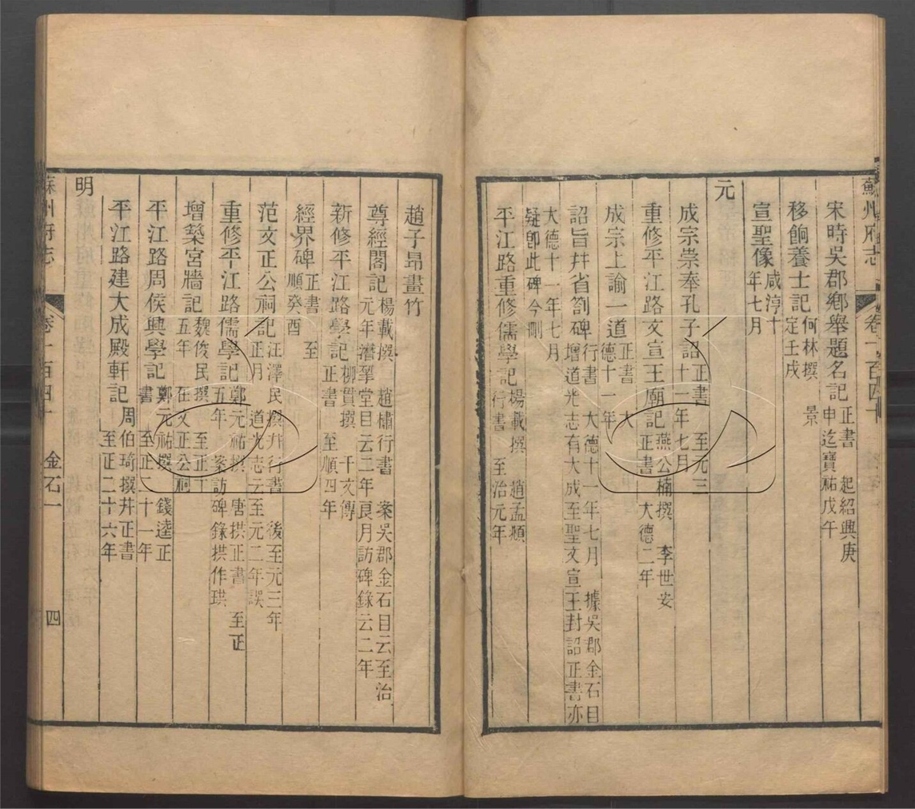 蘇州府志 卷一百四十
宋時吳郡鄉舉題名記 正書 起紹興庚
申迄寶祐戊午
移餉養士記 何林撰 景
定壬戌
宣聖像 咸淳十
年七月
元
成宗崇奉孔子詔 正書 至元三
十一年七月
重修平江路文宣王廟記 燕公楠撰 李世安
正書 大德二年
成宗上諭一道 正書 大
德十一年
詔旨幷省劄碑 行書 大德十一年七月 據吳郡金石目
增道光志有大成至聖文宣王封詔正書亦
大德十一年七月
疑卽此碑今刪
平江路重修儒學記 楊載撰 趙孟頫
行書 至治元年
趙子昂畫竹
尊經閣記 楊載撰 趙橚行書 案吳郡金石目云至治
元年 華堂目云二年良月訪碑錄云二年
新修平江路學記 柳貫撰 干文傳
正書 至順四年
經界碑 正書 至
順癸酉
范文正公祠記 汪澤民撰幷行書 後至元三年
正月 道光志云至元二年誤
重修平江路儒學記 鄭元祐撰 唐拱正書 至正
五年 案訪碑錄拱作珙
增築宮牆記 魏俊民撰 至正十
五年 在文正公祠
平江路周侯興學記 鄭元祐撰 錢逵正
書 至正二十一年
平江路建大成殿軒記 周伯琦撰幷正書
至正二十六年
明
蘇州府志 卷一百四十 金石一 四